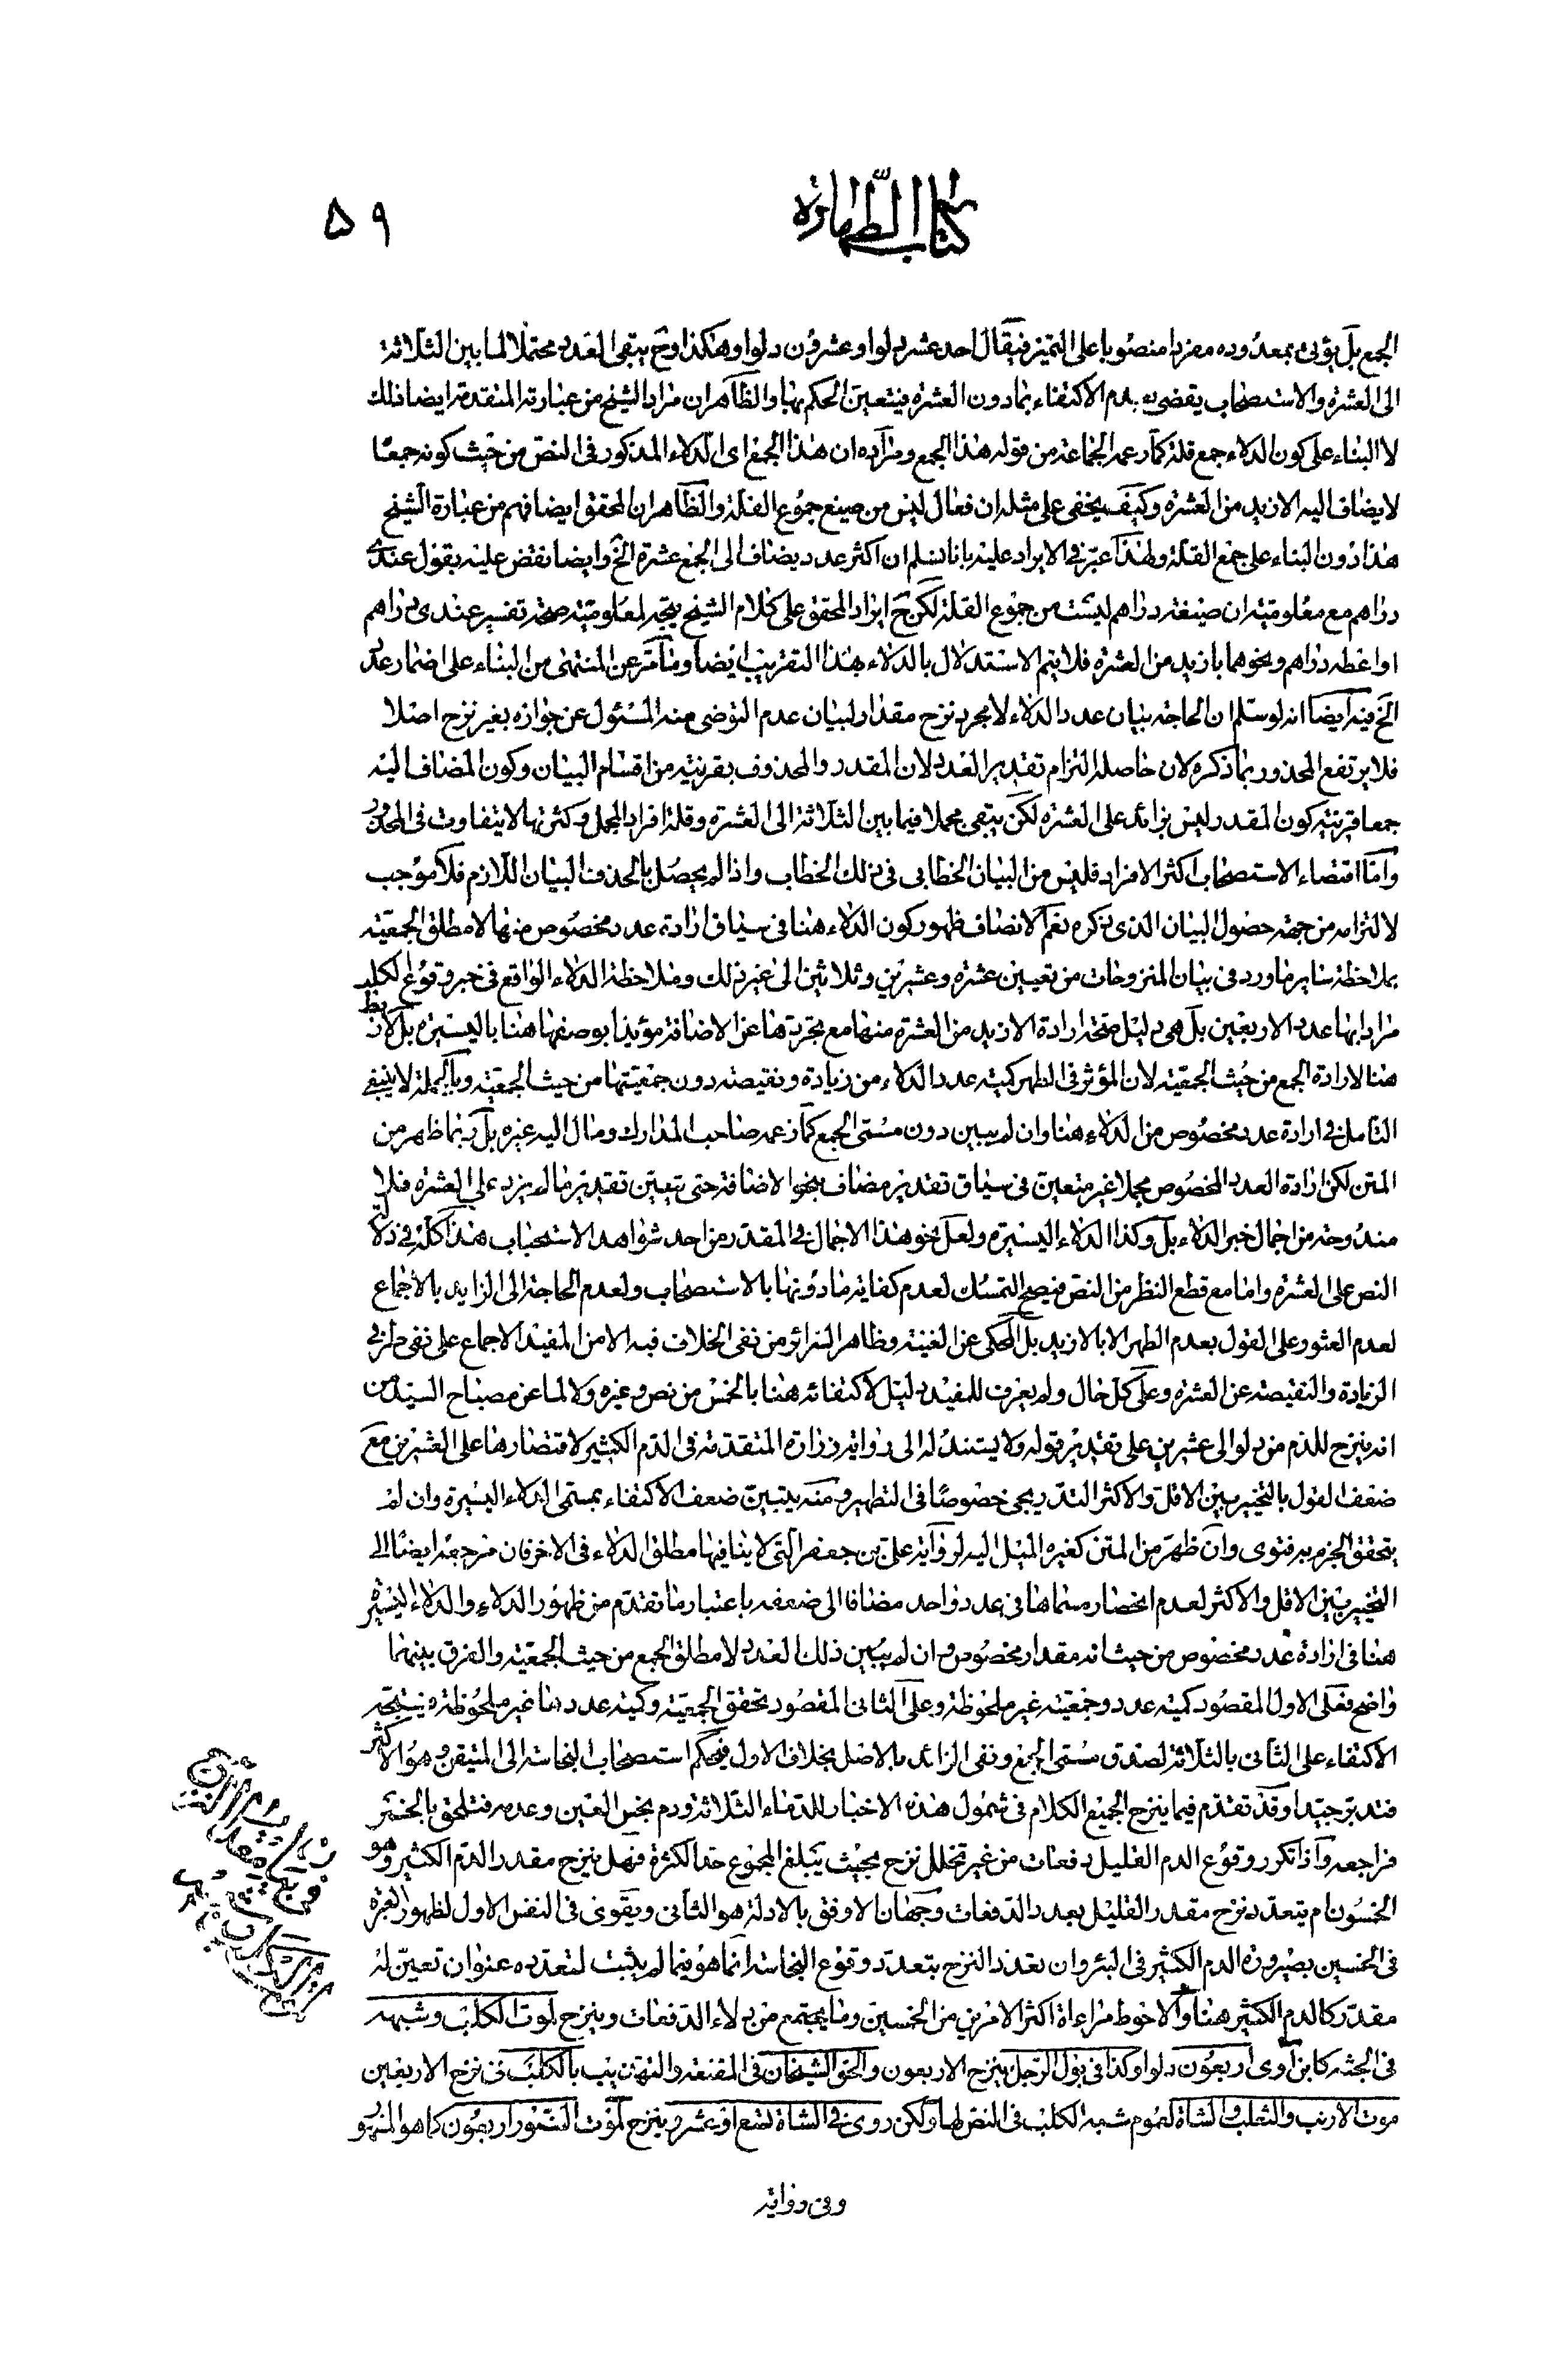 كتاب الطهارة
۵۹
الجمع بل يؤتى بمعدوده مفردا منصوبا على التميز فيقال احد عشر دلوا وعشرون دلوا وهكذا وح يبقى العدد محتملا لما بين الثلاثة
الى العشرة والاستصحاب يقضى بعدم الاكتفاء بما دون العشرة فيتعين الحكم بها والظاهر ان مراد الشيخ من عبارته المتقدمة ايضا ذلك
لا البناء على كون الدلاء جمع قلة كما زعمه الجماعة من قوله هذا الجمع ومراده ان هذا الجمع اى الدلاء المذكور فى النص من حيث كونه جمعا
لا يضاف اليه الازيد من العشرة وكيف يخفى على مثله ان فعال ليس من صيغ جموع القلة والظاهر ان المحقق ايضا فهم من عبارة الشيخ
هذا دون البناء على جمع القلة ولهذا عبر فى الايراد عليه بانا نسلم ان اكثر عدد يضاف الى الجمع عشرة الخ وايضا نقض عليه بقول عندى
دراهم مع معلومية ان صيغة دراهم ليست من جموع القلة لكن ح ايراد المحقق على كلام الشيخ يتجه لمعلومية صحة تفسير عندى دراهم
او اعطه دراهم ونحوهما بازيد من العشرة فلا يتم الاستدلال بالدلاء بهذا التقريب ايضا وما مر عن المنتهى من البناء على اضمار عدد
الخ فيه ايضا انه لو سلم ان الحاجة ببيان عدد الدلاء لا مجرد نزح مقدار لبيان عدم التوضى منه المسئول عن جوازه بغير نزح اصلا
فلا يرتفع المحذور بما ذكره لان حاصله التزام تقدير العدد لان المقدر والمحذوف بقرينة من اقسام البيان وكون المضاف اليه
جمعا قرينة كون المقدر ليس بزائد على العشرة لكن يبقى مجملا فيما بين الثلاثة الى العشرة وقلة افراد المجمل وكثرتها لا يتفاوت فى المحذور
واما اقتضاء الاستصحاب اكثر الافراد فليس من البيان الخطابى فى ذلك الخطاب واذا لم يحصل بالحذف البيان اللازم فلا موجب
لالتزامه من جهة حصول البيان الذى ذكره نعم الانصاف ظهور كون الدلاء هنا فى سياق ارادة عدد مخصوص منها لا مطلق الجمعية
بملاحظة ساير ما ورد فى بيان المنزوحات من تعيين عشرة وعشرين وثلاثين الى غير ذلك وملاحظة الدلاء الواقع فى خبر وقوع الكلب
مرادا بها عدد الاربعين بل هى دليل صحة ارادة الازيد من العشرة منها مع تجردها عن الاضافة مؤيدا بوصفها هنا باليسيرة بل لا ربط
هنا لارادة الجمع من حيث الجمعية لان المؤثر فى الطهر كمية عدد الدلاء من زيادة ونقيصة دون جمعيتها من حيث الجمعية وبالجملة لا ينبغى
التامل فى ارادة عدد مخصوص من الدلاء هنا وان لم يبين دون مسمى الجمع كما زعمه صاحب المدارك ومال اليه غيره بل ربما ظهر من
المتن لكن ارادة العدد المخصوص مجملا غير متعين فى سياق تقدير مضاف بنحو الاضافة حتى يتعين تقدير ما لم يزد على العشرة فلا
مندوحة من اجمال خبر الدلاء بل وكذا الدلاء اليسيرة ولعل نحو هذا الاجمال فى المقدر من احد شواهد الاستحباب هذا كله فى دلالة
النص على العشرة واما مع قطع النظر من النص فيصح التمسك لعدم كفاية ما دونها بالاستصحاب ولعدم الحاجة الى الزايد بالاجماع
لعدم العثور على القول بعدم الطهر الا بالازيد بل المحكى عن الغنية وظاهر السرائر من نفى الخلاف فيه الامن المفيد الاجماع على نفى طرفى
الزيادة والنقيصة عن العشرة وعلى كل حال ولم يعرف للمفيد دليل لاكتفائه هنا بالخمس من نص وغيره ولا لما عن مصباح السيد من
انه ينزح للدم من دلو الى عشرين على تقدير قوله ولا يستند له الى رواية زرارة المتقدمة فى الدم الكثير لاقتصارها على العشرين مع
ضعف القول بالتخيير بين الاقل والاكثر التدريجى خصوصا فى التطهير ومنه يتبين ضعف الاكتفاء بمسمى الدلاء اليسيرة وان لم
يتحقق الجزم به فتوى وان ظهر من المتن كغيره الميل اليه لرواية على بن جعفر التى لا ينافيها مطلق الدلاء فى الاخر فان مرجعه ايضا الى
التخيير بين الاقل والاكثر لعدم انحصار مسماها فى عدد واحد مضافا الى ضعفه باعتبار ما تقدم من ظهور الدلاء والدلاء اليسيرة
هنا فى ارادة عدد مخصوص من حيث انه مقدار مخصوص وان لم يبين ذلك العدد لا مطلق الجمع من حيث الجمعية والفرق بينهما
واضح فعلى الاول المقصود كمية عدد وجمعية غير ملحوظة وعلى الثانى المقصود تحقق الجمعية وكمية عددها غير ملحوظة فيتجه
الاكتفاء على الثانى بالثلاثة لصدق مسمى الجمع ونفى الزائد بالاصل بخلاف الاول فيحكم استصحاب النجاسة الى المتيقن وهو الاكثر
فتدبر جيدا وقد تقدم فيما ينزح الجميع الكلام فى شمول هذه الاخبار للدماء الثلاثة ودم نجس العين وعدمه فتلحق بالخمر
فراجعه واذا تكرر وقوع الدم القليل دفعات من غير تخلل نزح بحيث يبلغ المجموع حد الكثرة فهل ينزح مقدر الدم الكثير وهو
الخمسون ام يتعدد نزح مقدر القليل بعدد الدفعات وجهان الاوفق بالادلة هو الثانى ويقوى فى النفس الاول لظهور العبرة
فى الخمسين بصيرورة الدم الكثير فى البئر وان تعدد النزح بتعدد وقوع النجاسة انما هو فيما لم يثبت لتعدده عنوان تعين له
مقدر كالدم الكثير هنا والاحوط مراعاة اكثر الامرين من الخمسين وما يجتمع من دلاء الدفعات وينزح لموت الكلب وشبهه
فى الجثة كابن آوى اربعون دلوا وكذا فى بول الرجل ينزح الاربعون والحق الشيخان فى المقنعة والتهذيب بالكلب فى نزح الاربعين
موت الارنب والثعلب والشاة لعموم شبه الكلب فى النص لها ولكن روى فى الشاة تسع او عشر وينزح لموت السنور اربعون كما هو المشهور
وفى رواية